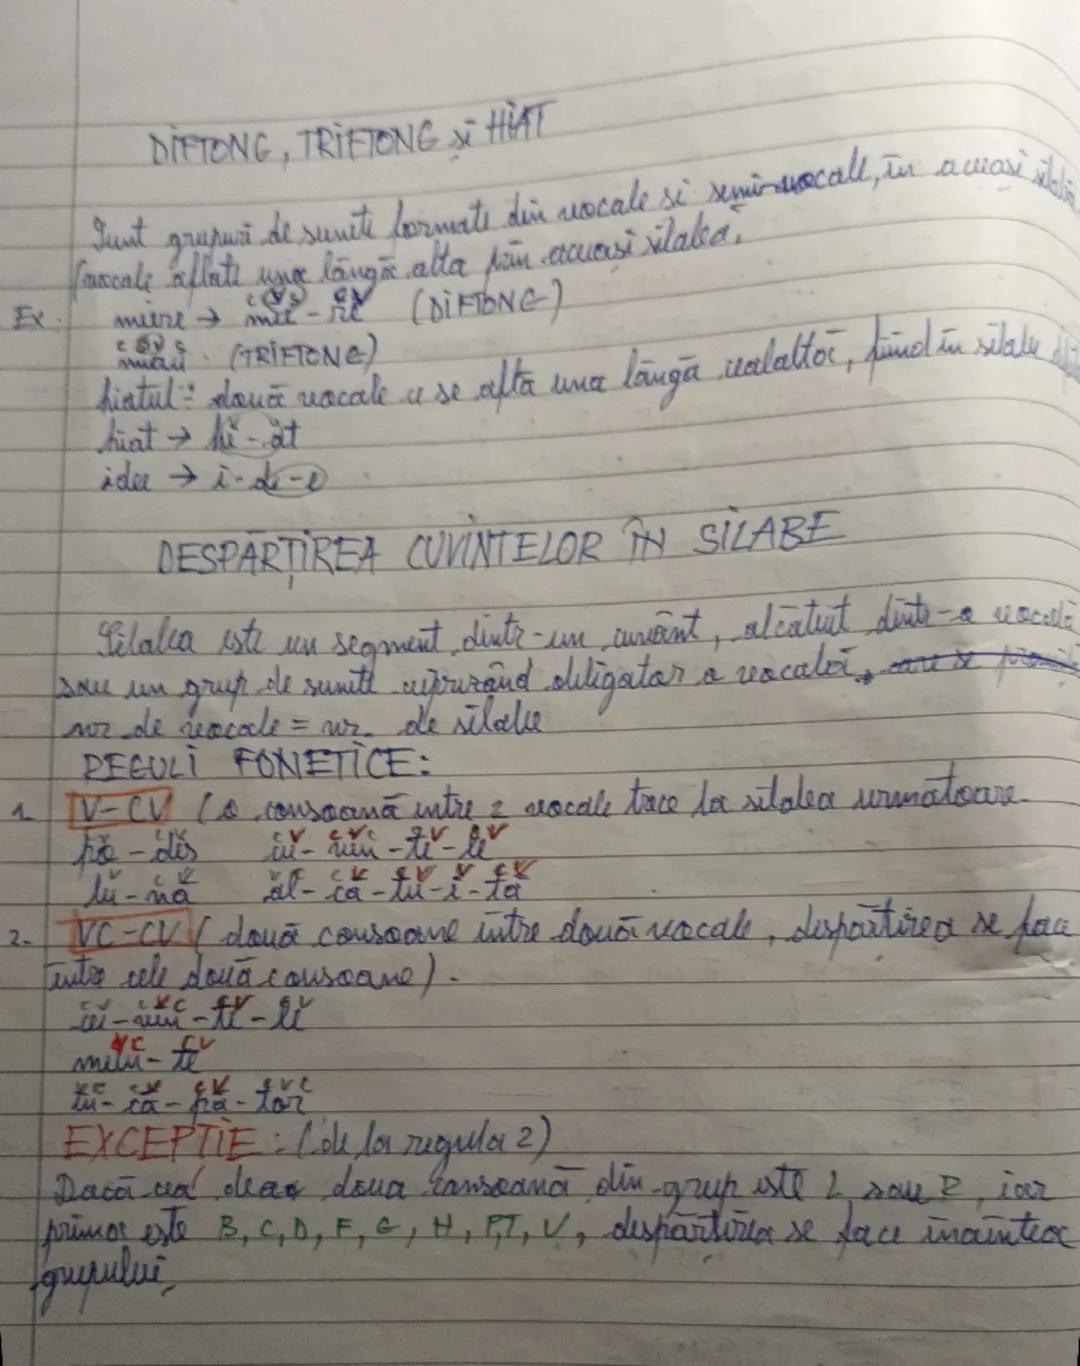 DIFTONG, TRIFTONG și HIAT
Sunt grupuri de sunete formate din vocale si semivocale, în aceeasi silabă
(vocale aflate una lângă alta prin aceeasi silabă.
Ex: miere → mie - re (DIFTONG)
c s v s
miau. (TRIFTONG)
hiatul: două vocale ce se aflã una lângã cealaltă, fiind în silabe
hiat → hi - at
idee → i - de - e
DESPĂRȚIREA CUVINTELOR ÎN SILABE
Silaba este un segment dintr-un cuvânt, alcătuit dintr-o vocală
sau un grup de sunete cuprinzând obligator o vocală,
nor de vocale = nr. de silabe
REGULI FONETICE:
1. V-CV (o consoană intre 2 vocale trece la silaba urmatoare.
lu - nă ăl - ca - tu - i - tă
2. VC-CV (două consoane intre două vocale, despărtirea se face
intre cele două consoane).
EXCEPTIE: (de la regula 2)
Dacă cea dea doua consoană din grup este L sau R, iar
prima este B, C, D, F, G, H, P, T, V, despărtirea se face inaintea
grupului.